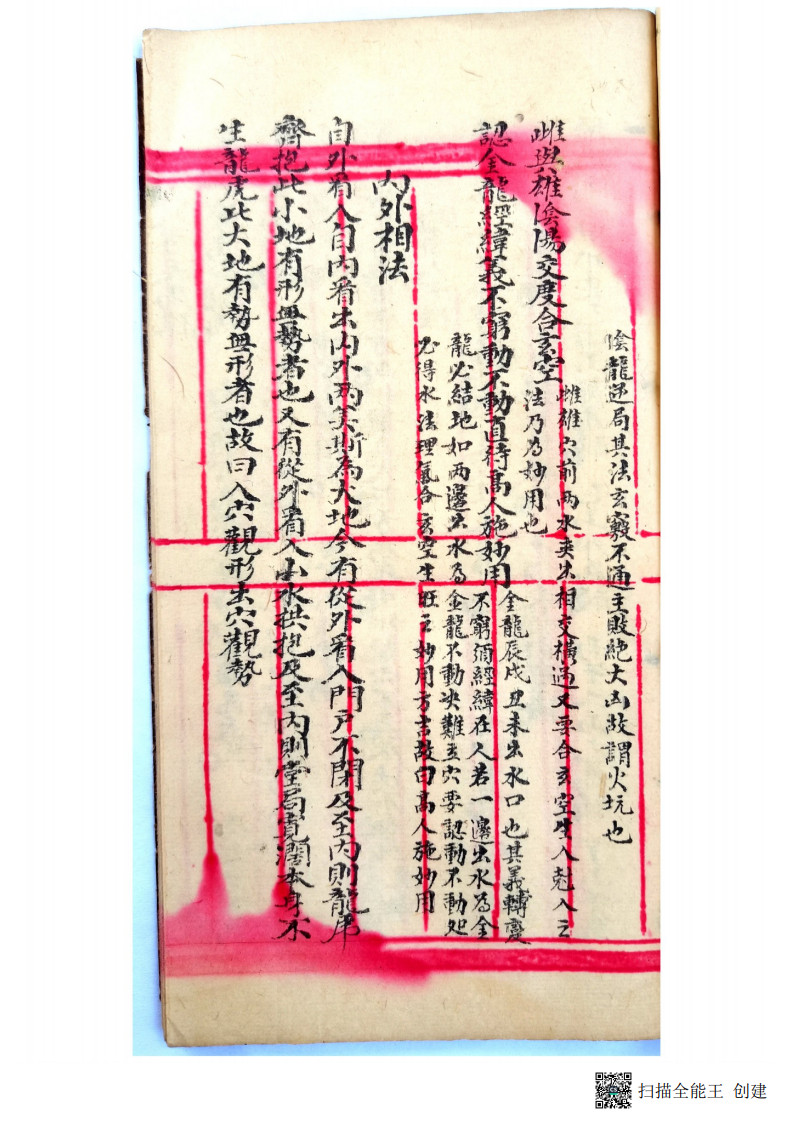 陰龍逆局其法玄竅不通主敗絕大凶故謂火坑也
雌與雄陰陽交度合玄空
雌雄穴前兩水夾出相交橫過又要合玄空生入尅入之
法乃為妙用也
認金龍經緯義不窮動不動直待高人施妙用
金龍辰戌丑未出水口也其義轉變
不窮須經緯在人若一邊出水為金
龍必結地如兩邊出水為金龍不動決難立穴要認動不動処
必得水法理氣合玄空生旺之妙用方吉故曰高人施妙用
內外相法
自外看入自內看出內外兩美斯為大地今有從外看入門戶不閉及至內則龍虎
齊抱此小地有形無勢者也又有從外看入山水拱抱及至內則堂局寬濶本身不
生龍虎此大地有勢無形者也故曰入穴觀形出穴觀勢
扫描全能王 创建